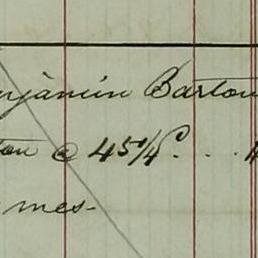 njamin Barton
ton @ 45 1/4 . . .
mes-